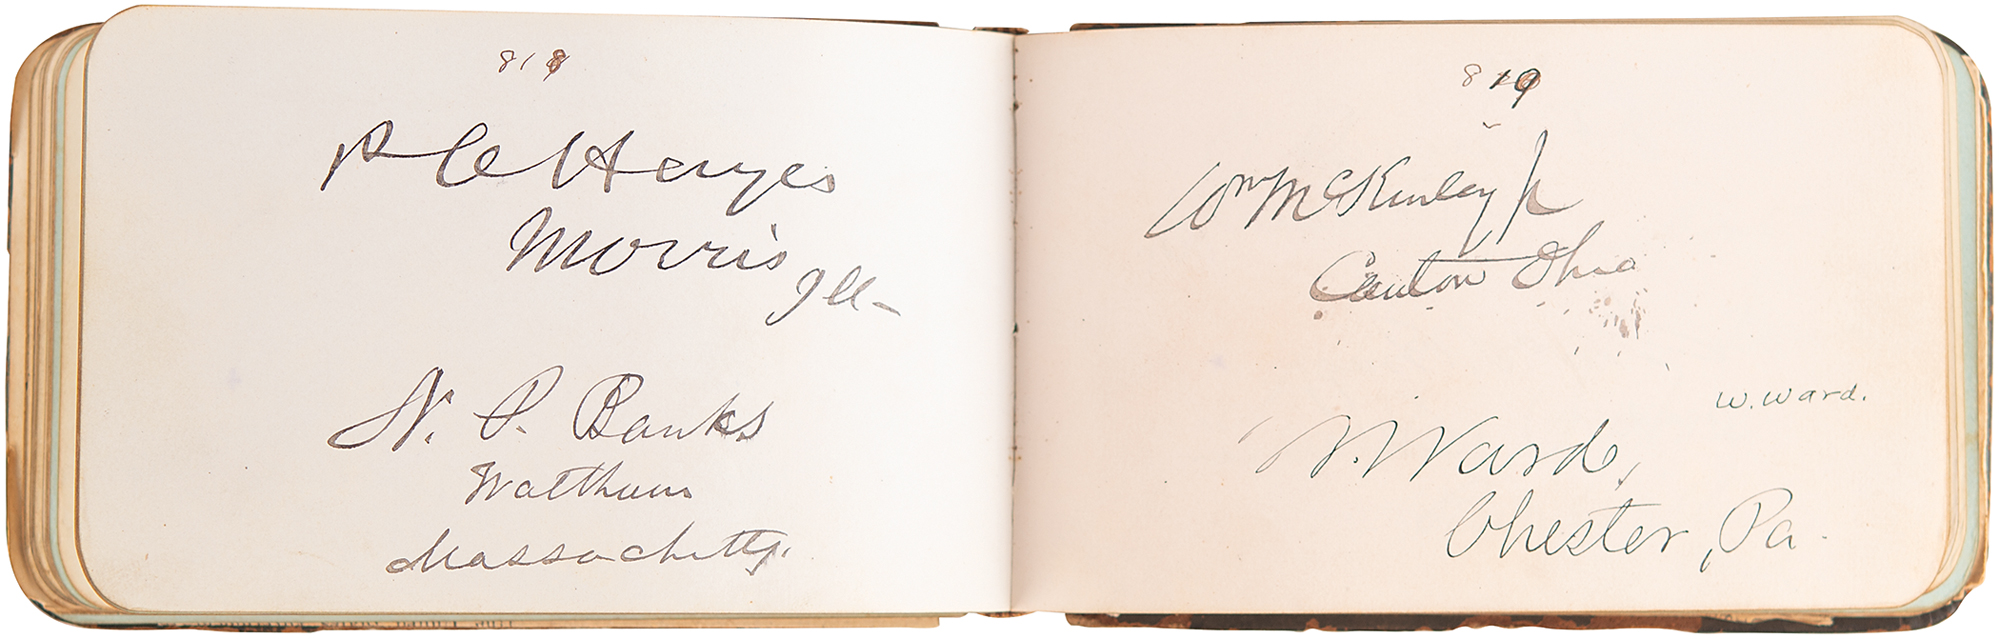 818
P C Hayes
Morris
Ill-
N. P. Banks
Waltham
Massachetts.
819
Wm McKinley Jr
Canton Ohio
W. Ward.
W. Ward,
Chester, Pa.